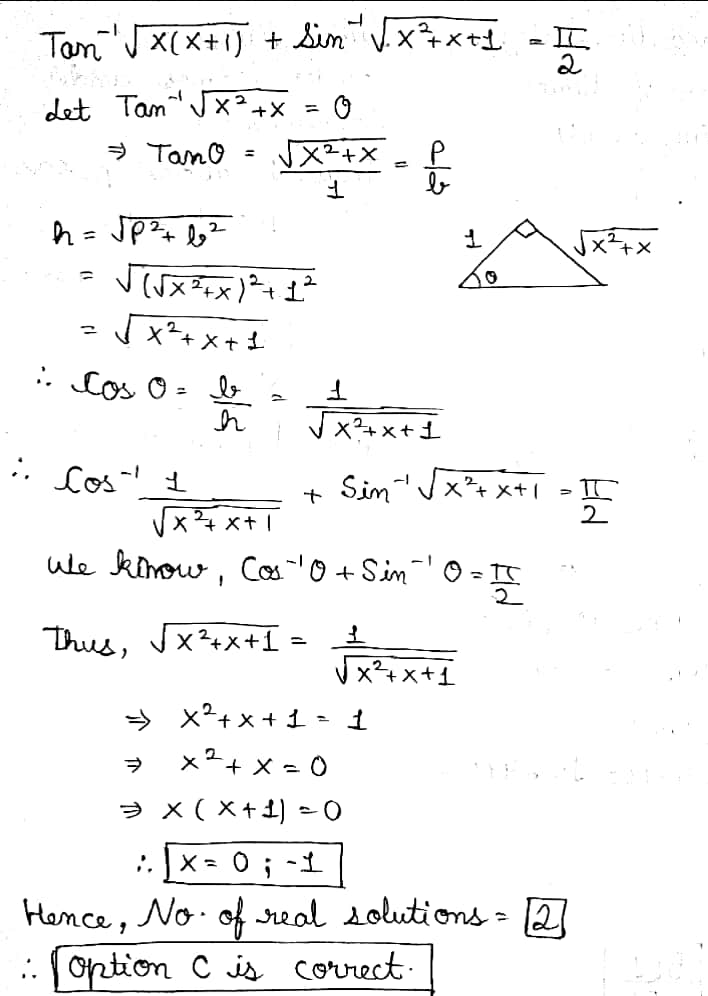 Tan⁻¹√x(x+1) + Sin⁻¹√x²+x+1 = π/2
Let Tan⁻¹√x²+x = θ
⇒ Tanθ = √x²+x/1 = p/b
h = √p²+b²
1 √x²+x
θ
= √(√x²+x)²+1²
= √x²+x+1
∴ Cos θ = b/h = 1/√x²+x+1
∴ Cos⁻¹ 1/√x²+x+1 + Sin⁻¹√x²+x+1 = π/2
We know, Cos⁻¹θ + Sin⁻¹θ = π/2
Thus, √x²+x+1 = 1/√x²+x+1
⇒ x²+x+1 = 1
⇒ x²+x = 0
⇒ x(x+1) = 0
∴ x = 0 ; -1
Hence, No. of real solutions = 2
∴ Option C is correct.